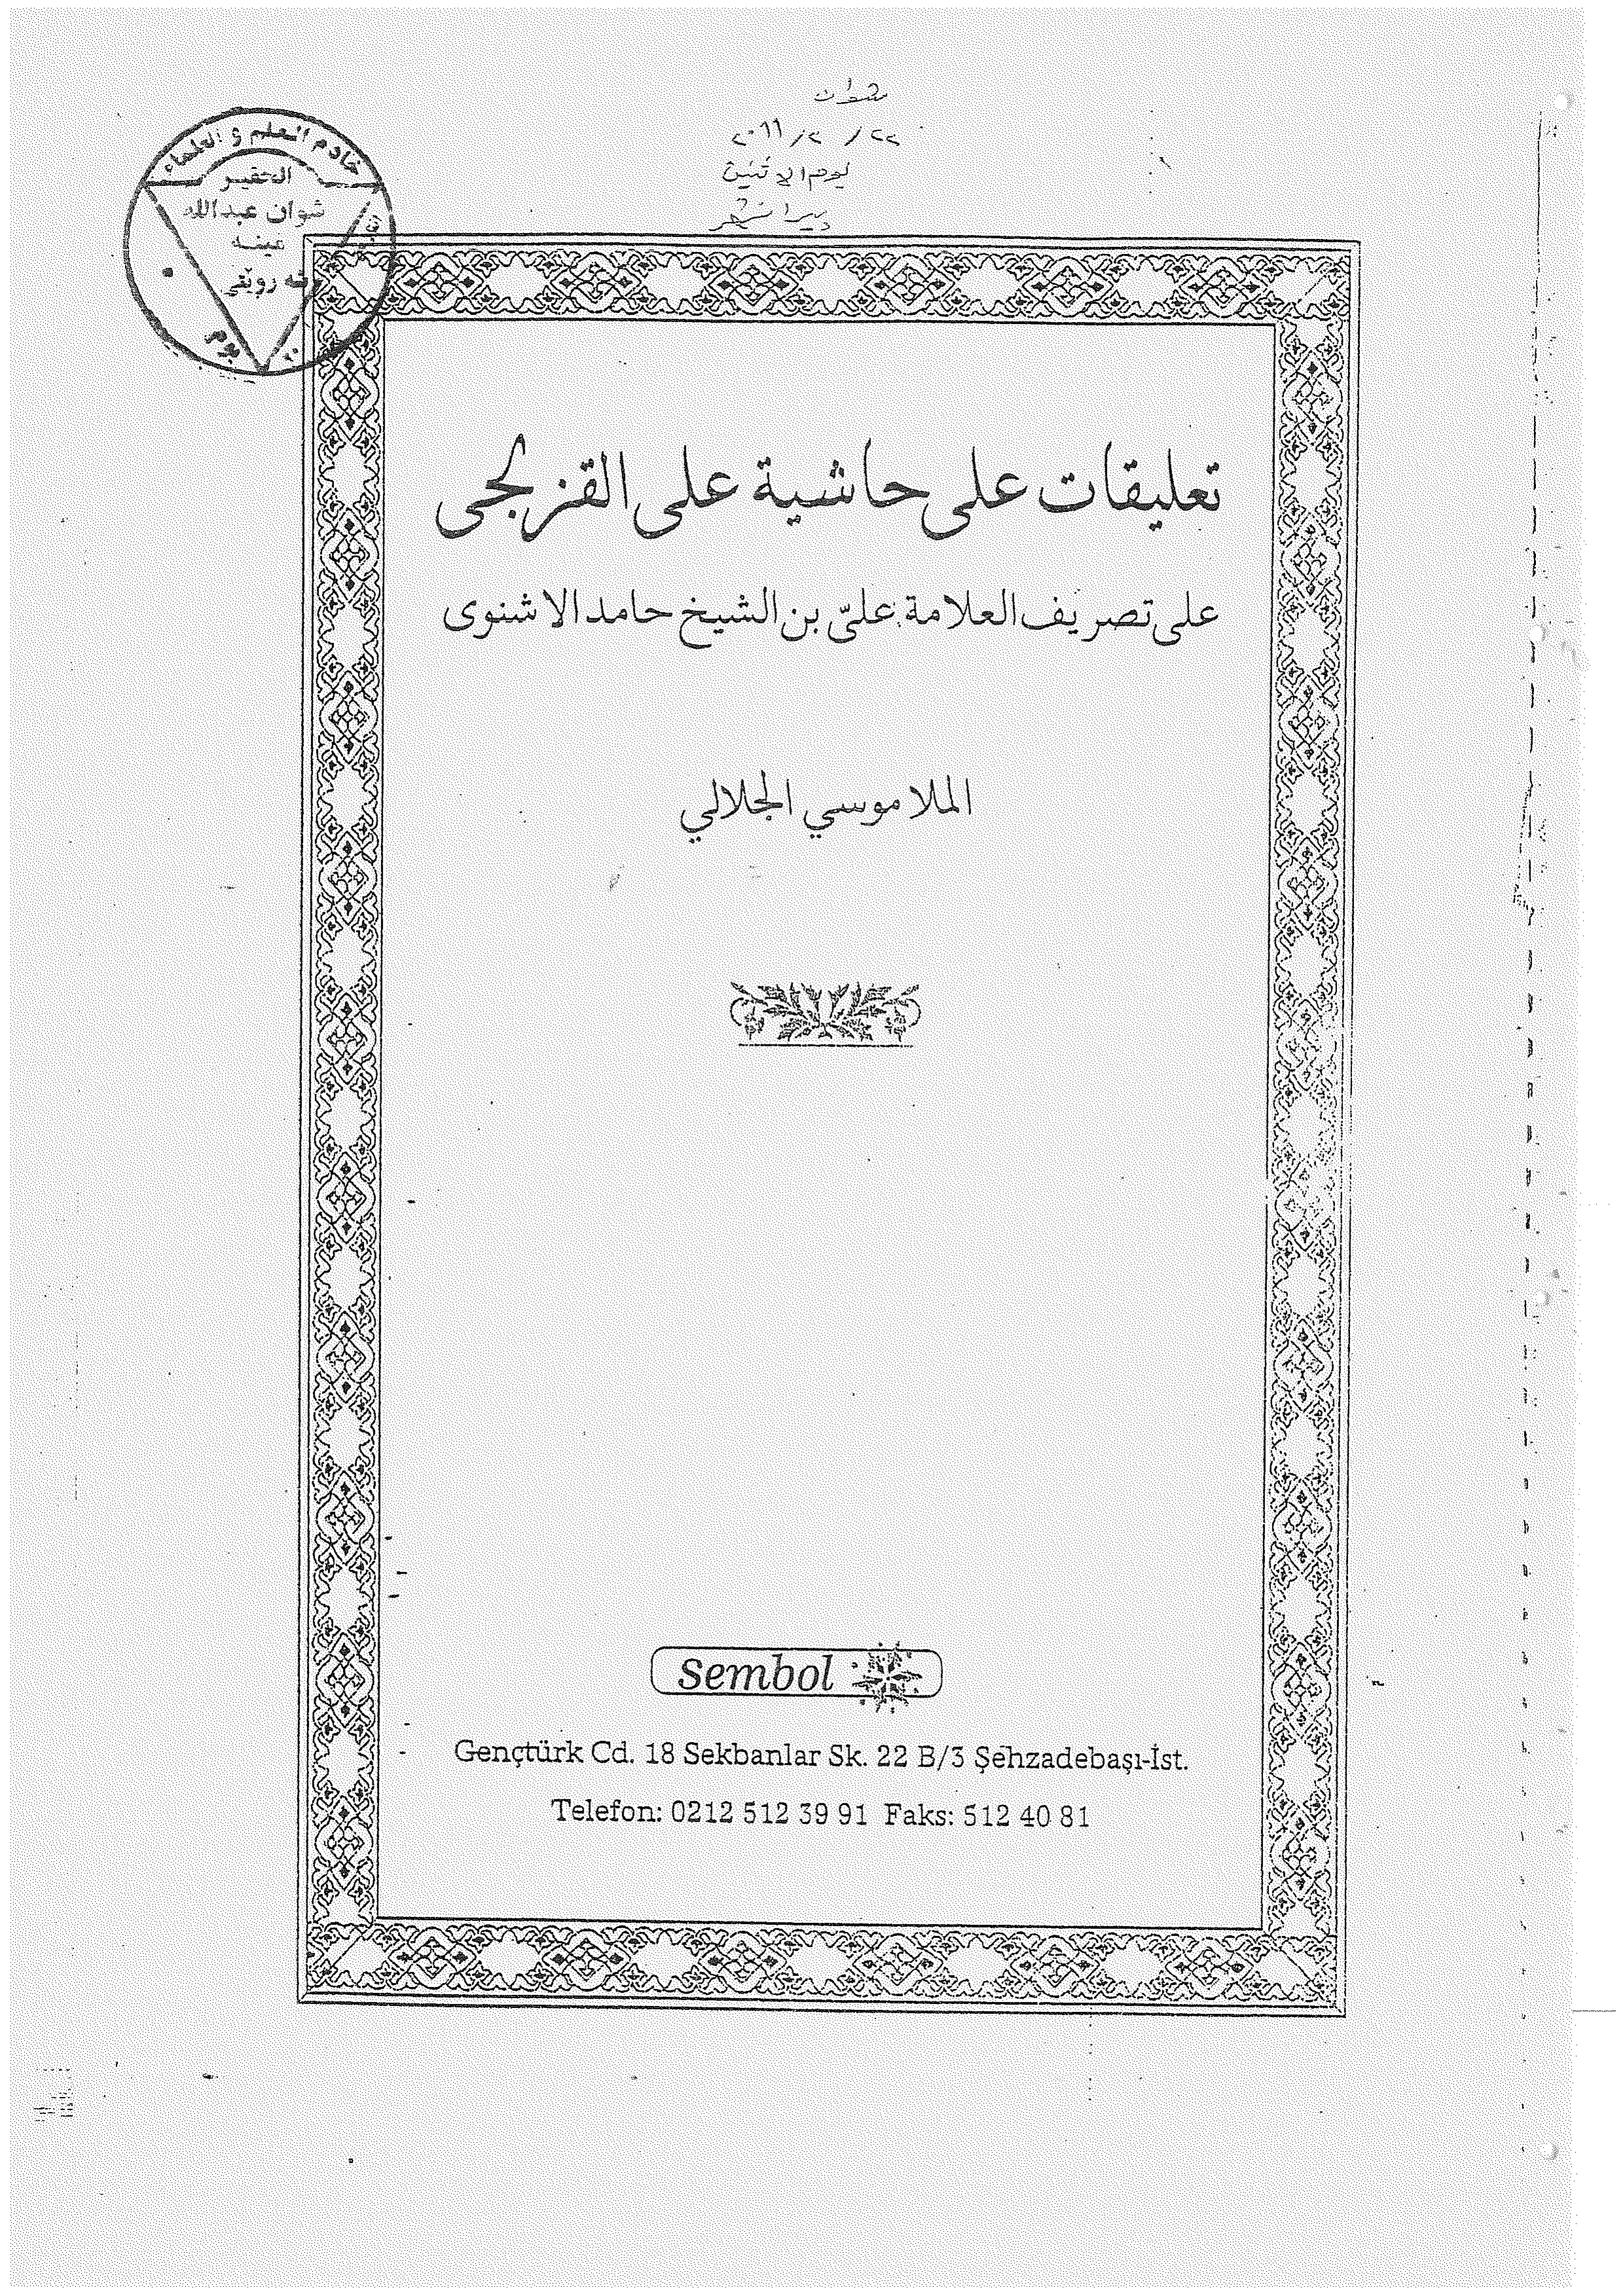 شوان
٢٢ / ٢ / ٢٠١١
يوم الاثنين
خادم العلم و العلماء
الحقير
شوان عبدالله
عينه
تعليقات على حاشية على القزلجى
على تصريف العلامة علىّ بن الشيخ حامد الاشنوى
الملا موسي الجلالي
Sembol
Gençtürk Cd. 18 Sekbanlar Sk. 22 B/3 Şehzadebaşı-İst.
Telefon: 0212 512 39 91 Faks: 512 40 81